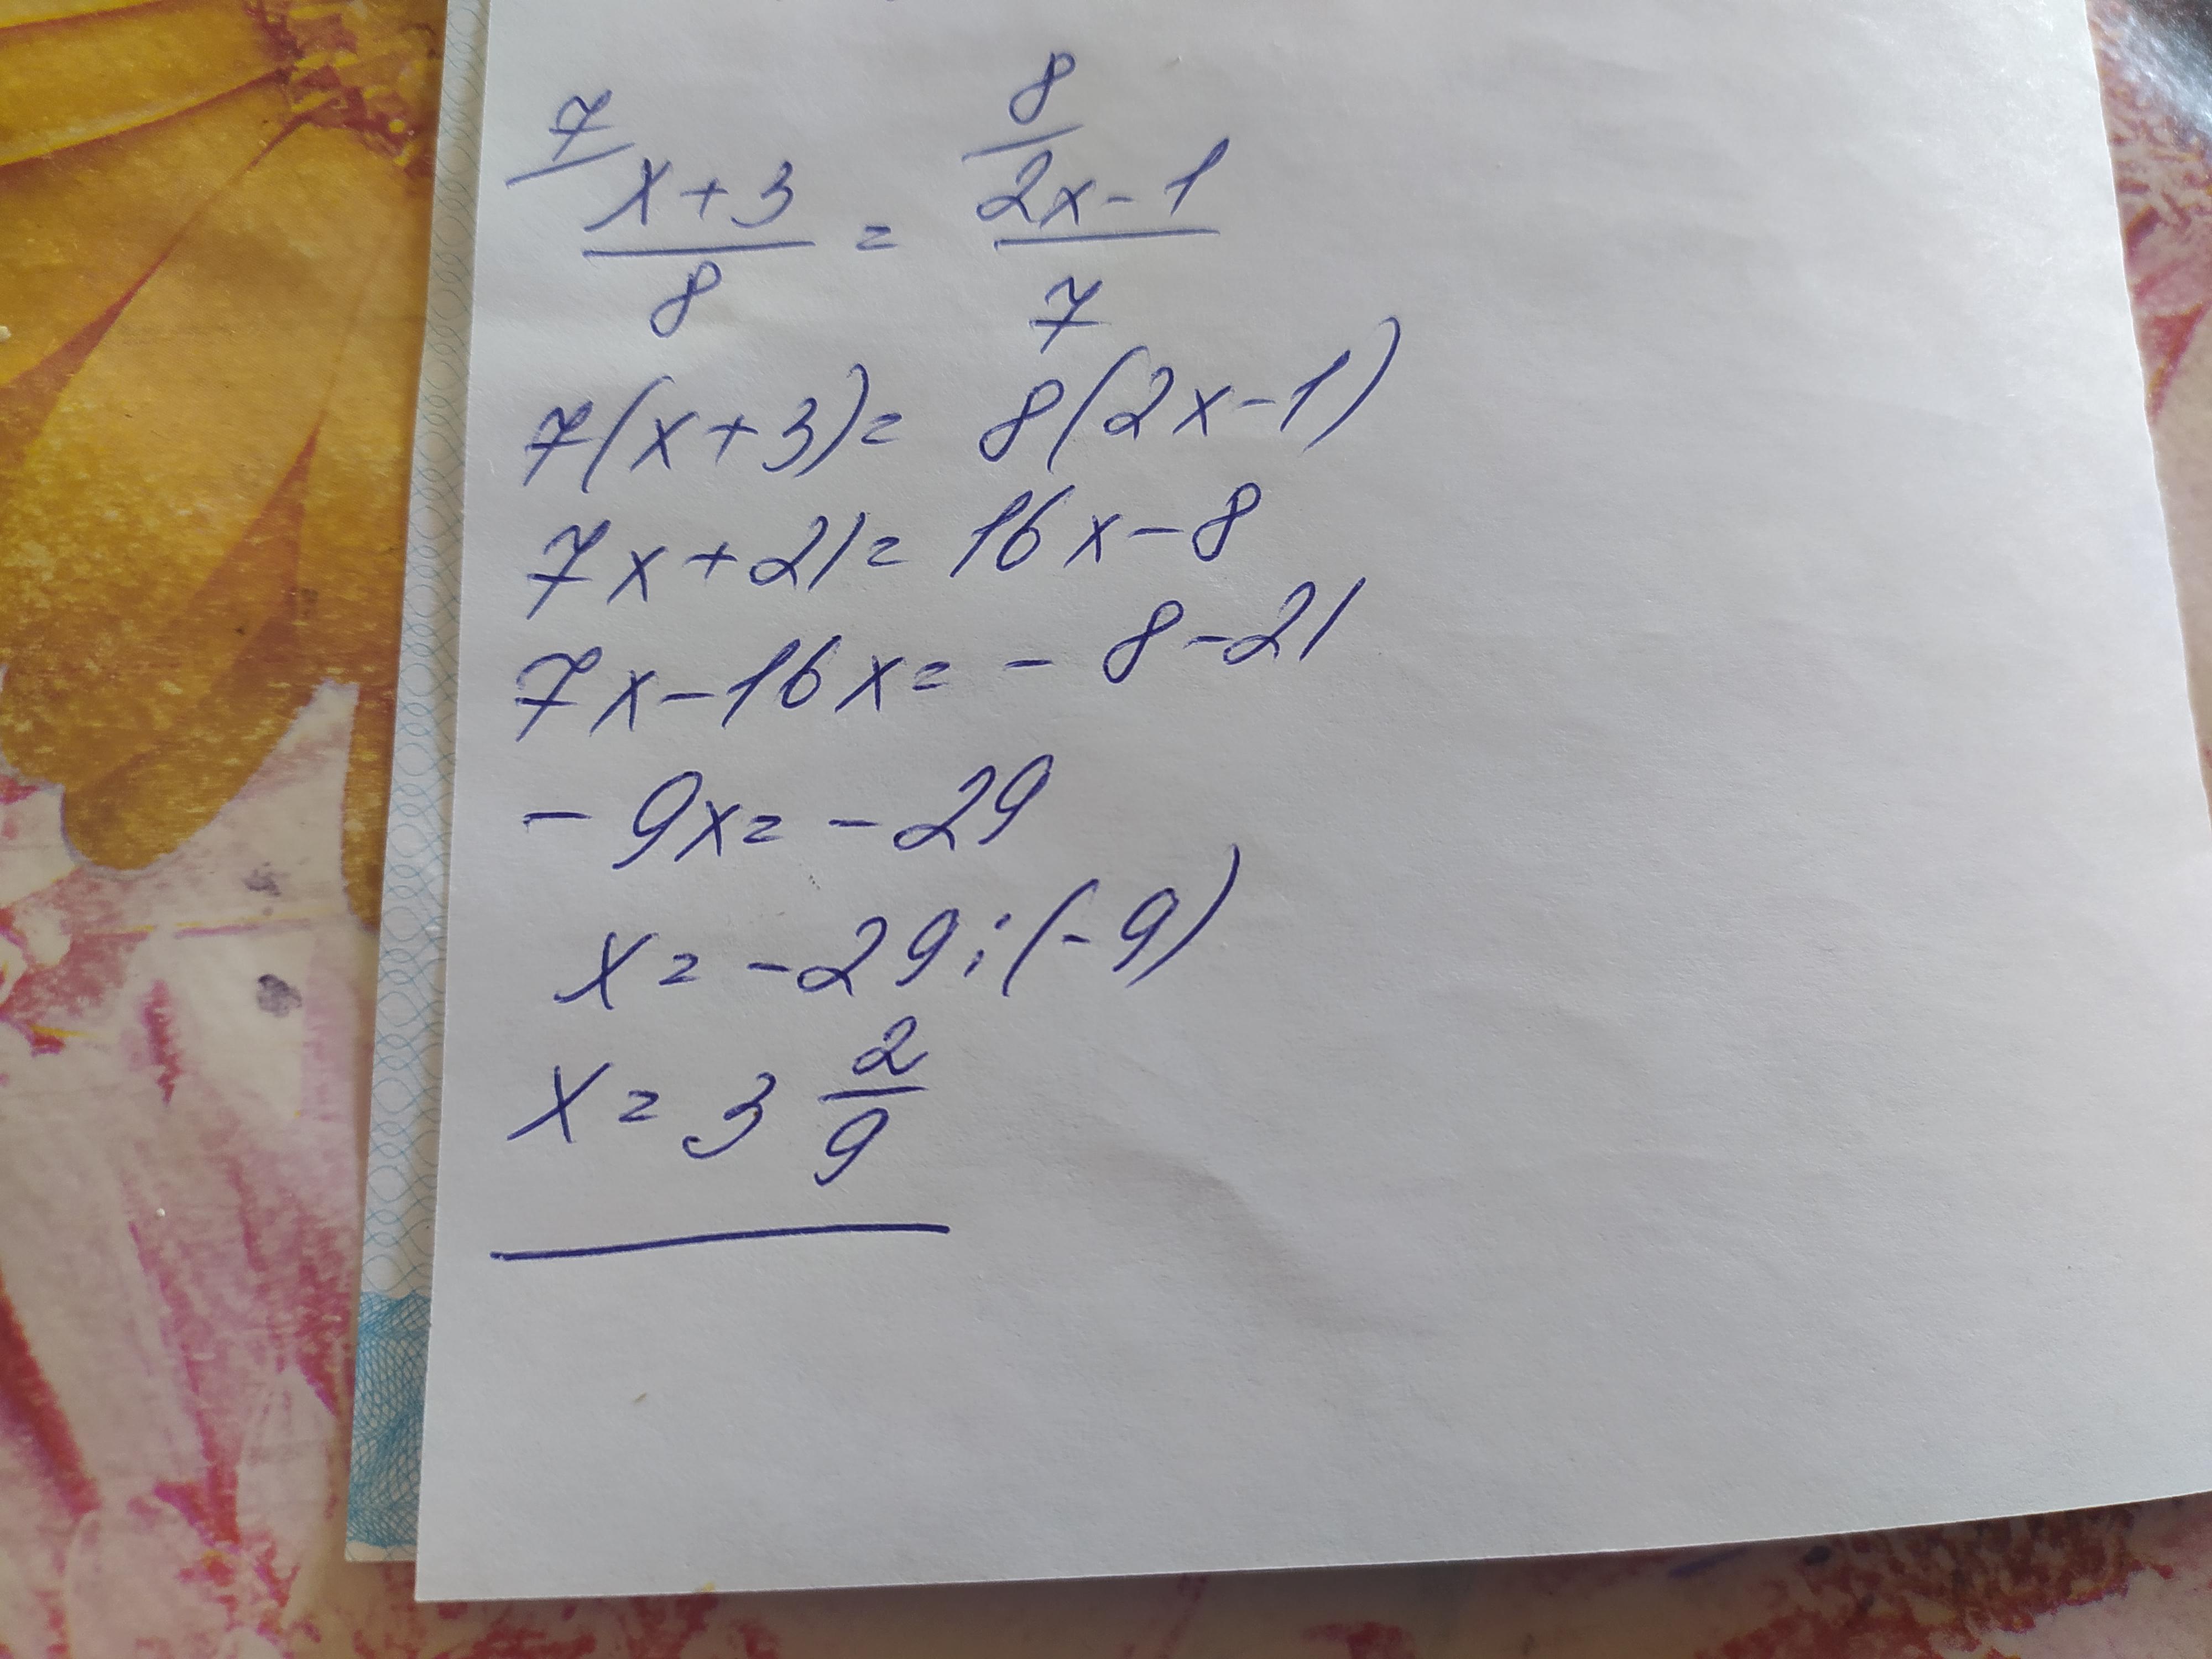 7/ (x+3)/8 = 8/ (2x-1)/7
7(x+3)= 8(2x-1)
7x+21= 16x-8
7x-16x= -8-21
-9x= -29
x= -29:(-9)
x= 3 2/9